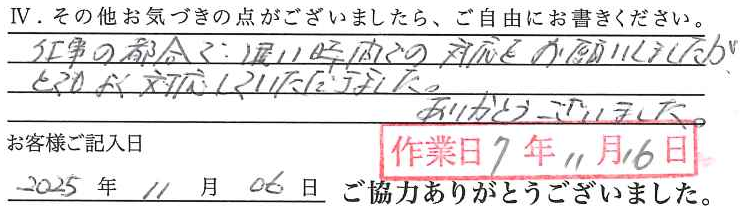 Ⅳ．その他お気づきの点がございましたら、ご自由にお書きください。
仕事の都合で、遅い時間での対応をお願いしましたが
とても良く対応していただきました。
ありがとうございました。
お客様ご記入日
作業日 7年11月16日
2025年11月06日 ご協力ありがとうございました。